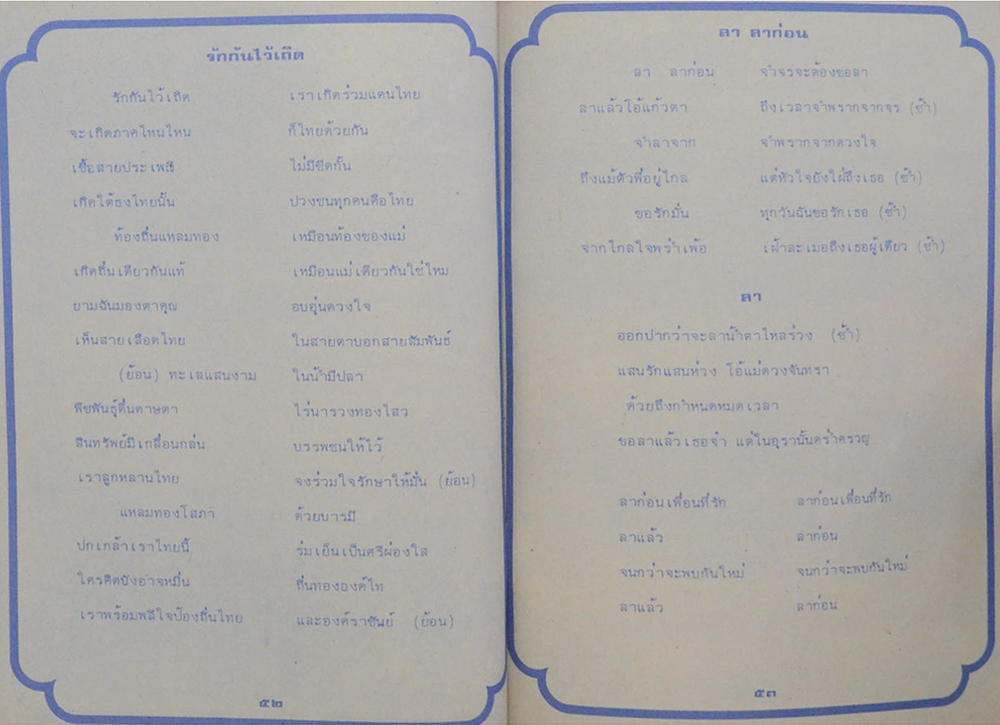 รักกันไว้เถิด
รักกันไว้เถิด เราเกิดร่วมแดนไทย
จะเกิดภาคไหนไหน ก็ไทยด้วยกัน
เชื้อสายประเพณี ไม่มีขีดกั้น
เกิดใต้ธงไทยนั้น ปวงชนทุกคนคือไทย
ท้องถิ่นแหลมทอง เหมือนท้องของแม่
เกิดถิ่นเดียวกันแท้ เหมือนแม่เดียวกันใช่ไหม
ยามฉันมองตาคุณ อบอุ่นดวงใจ
เห็นสายเลือดไทย ในสายตาบอกสายสัมพันธ์
(ย้อน) ทะเลแสนงาม ในน้ำมีปลา
พืชพันธุ์ดื่นดาษตา ไร่นารวงทองไสว
สินทรัพย์มีเกลื่อนกล่น บรรพชนให้ไว้
เราลูกหลานไทย จงร่วมใจรักษาให้มั่น (ย้อน)
แหลมทองโสภา ด้วยบารมี
ปกเกล้าเราไทยนี้ ร่มเย็นเป็นศรีผ่องใส
ใครคิดบังอาจหมิ่น ถิ่นทององค์ไท
เราพร้อมพลีใจป้องถิ่นไทย และองค์ราชันย์ (ย้อน)
๕๒
ลา ลาก่อน
ลา ลาก่อน จำจรจะต้องขอลา
ลาแล้วโอ้แก้วตา ถึงเวลาจำพรากจากจร (ซ้ำ)
จำลาจาก จำพรากจากดวงใจ
ถึงแม้ตัวพี่อยู่ไกล แต่หัวใจยังใฝ่ถึงเธอ (ซ้ำ)
ขอรักมั่น ทุกวันฉันขอรักเธอ (ซ้ำ)
จากไกลใจพร่ำเพ้อ เฝ้าละเมอถึงเธอผู้เดียว (ซ้ำ)
ลา
ออกปากว่าจะลาน้ำตาไหลร่วง (ซ้ำ)
แสนรักแสนห่วง โอ้แม่ดวงจันทรา
ด้วยถึงกำหนดหมดเวลา
ขอลาแล้วเธอจ๋า แต่ในอุรานั้นคร่ำครวญ
ลาก่อนเพื่อนที่รัก ลาก่อนเพื่อนที่รัก
ลาแล้ว ลาก่อน
จนกว่าจะพบกันใหม่ จนกว่าจะพบกันใหม่
ลาแล้ว ลาก่อน
๕๓